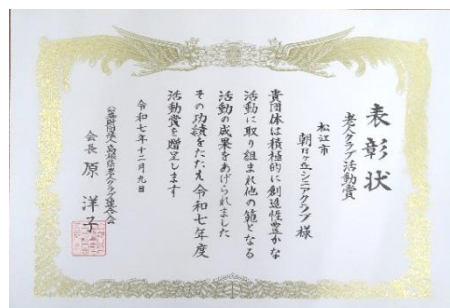 表彰状
老人クラブ活動賞
松江市
朝日ヶ丘シニアクラブ 様
貴団体は積極的に創造性豊かな
活動に取り組まれ他の範となる
活動の成果をあげられました
その功績をたたえ令和七年度
活動賞を贈呈します
令和七年十二月九日
公益財団法人 島根県老人クラブ連合会
会長 原 洋子